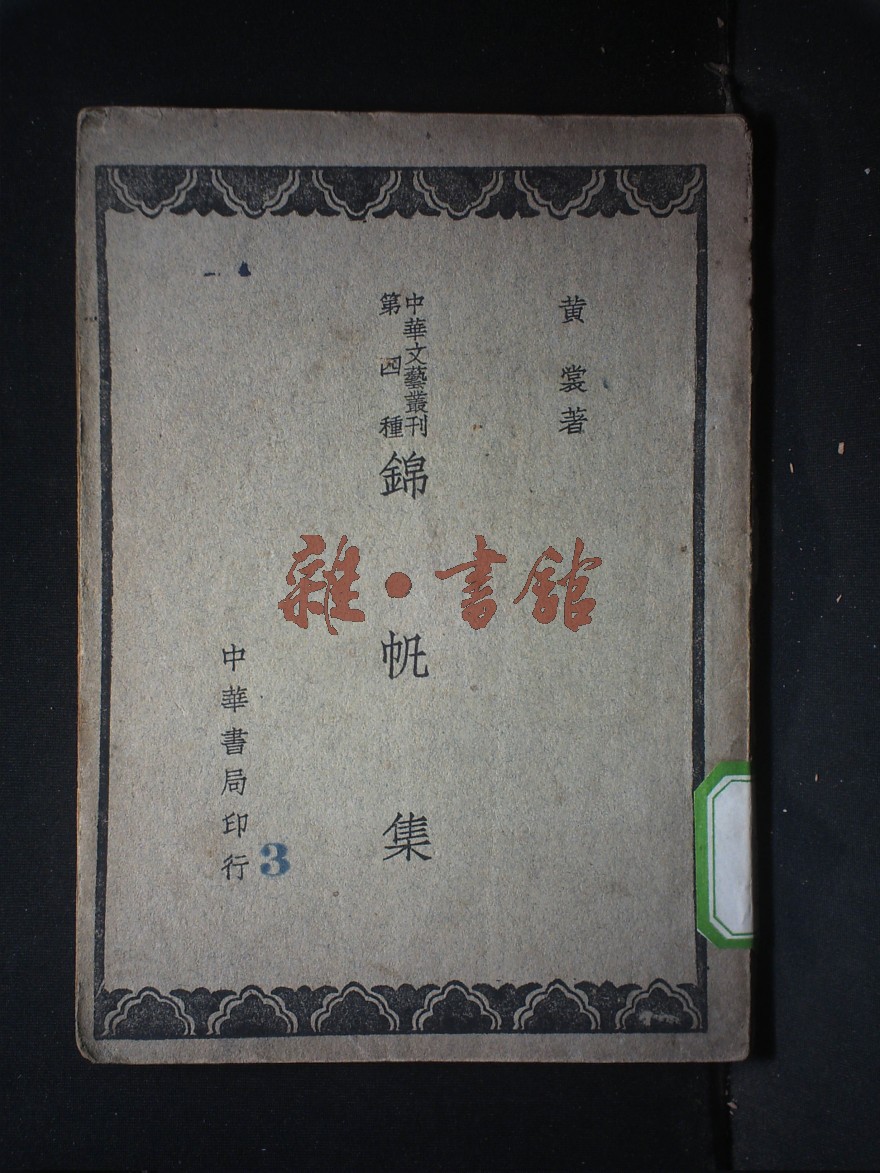 黄裳著
中華文藝叢刊
第四種
錦帆集
中華書局印行
3
雜·書館